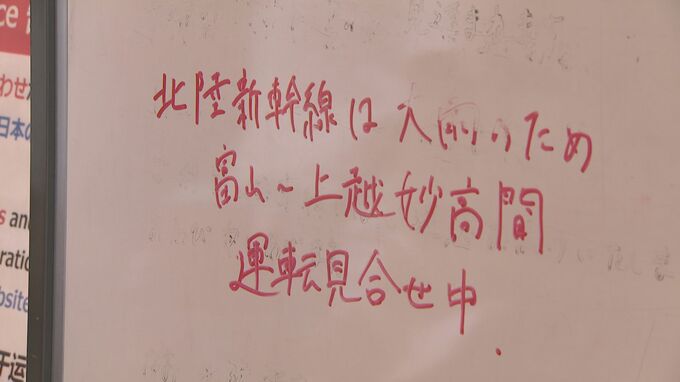 ce
わせた
日本の
s and
ratio
bsite
干运
北陸新幹線は大雨のため
富山~上越妙高間
運転見合せ中.